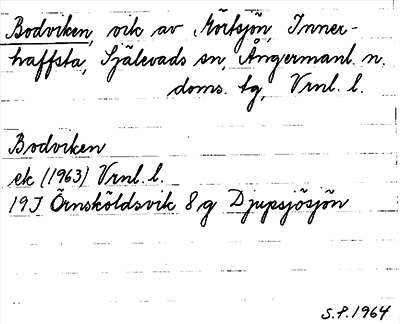 Bodviken, vik av Mörtsjön, Inner-
haffsta, Själevads sn, Ångermanl. n.
doms. tg, Vrnl. l.
Bodviken
ek (1963) Vrnl. l.
19J Örnsköldsvik 8g Djupsjösjön
S.P. 1964